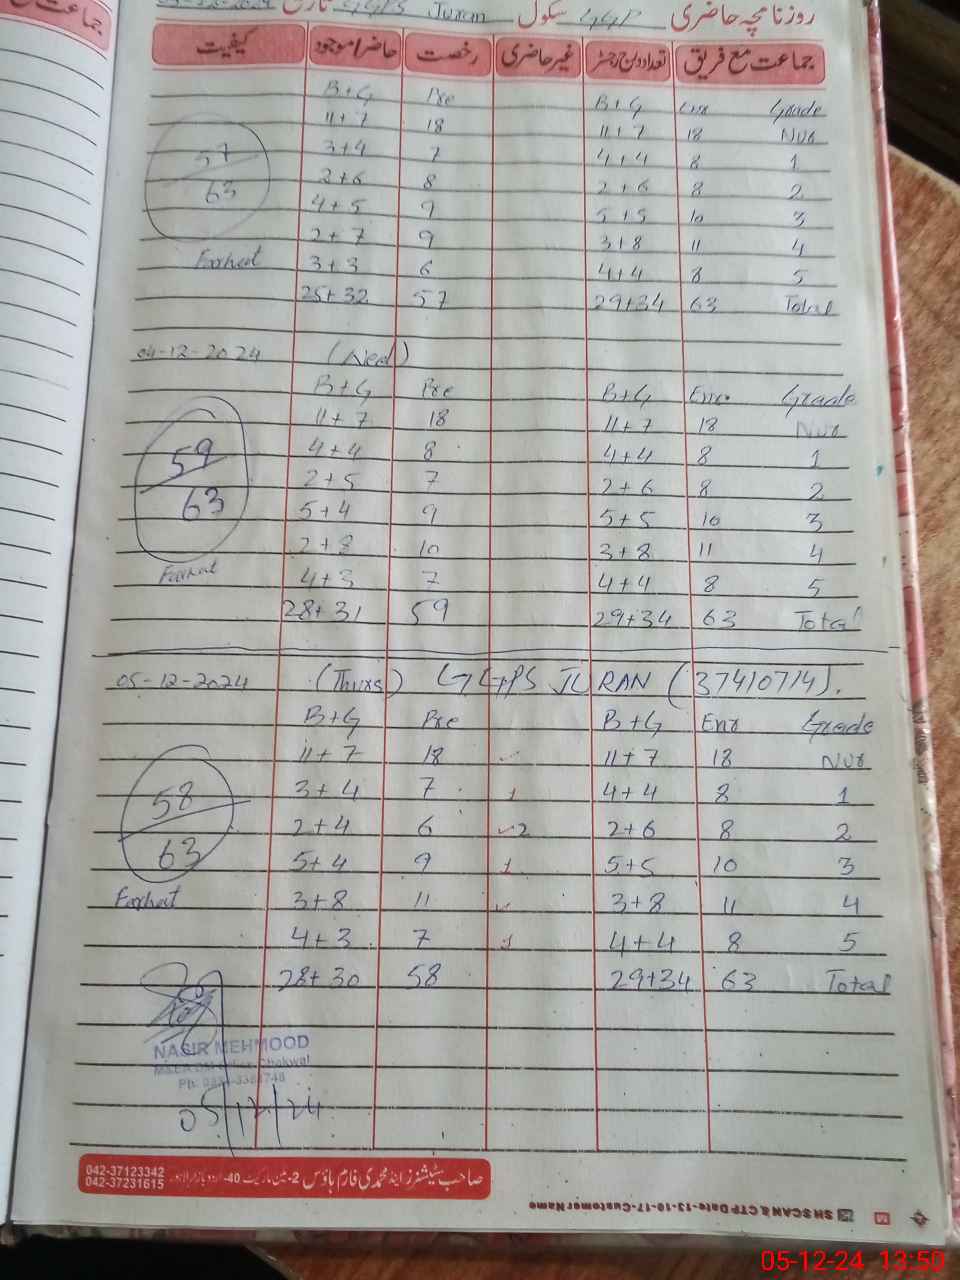 روزنامچہ حاضری GGPS سکول GGPS Juran تاریخ 03-12-2024
جماعت مع فریق تعداد درج رجسٹر غیر حاضری رخصت حاضر/موجود کیفیت
B+G Pre B+G Enr Grade
11+7 18 11+7 18 Nur
3+4 7 4+4 8 1
57 2+6 8 2+6 8 2
63 4+5 9 5+5 10 3
2+7 9 3+8 11 4
Farhat 3+3 6 4+4 8 5
25+32 57 29+34 63 Total
04-12-2024 (Wed)
B+G Pre B+G Enr Grade
11+7 18 11+7 18 Nur
59 4+4 8 4+4 8 1
2+5 7 2+6 8 2
63 5+4 9 5+5 10 3
2+8 10 3+8 11 4
Farhat 4+3 7 4+4 8 5
28+31 59 29+34 63 Total
05-12-2024 (Thurs) GGPS JURAN (37410714).
B+G Pre B+G Enr Grade
11+7 18 ✓ 11+7 18 Nur
58 3+4 7 1 4+4 8 1
2+4 6 ✓2 2+6 8 2
63 5+4 9 1 5+5 10 3
Farhat 3+8 11 ✓ 3+8 11 4
4+3 7 1 4+4 8 5
28+30 58 29+34 63 Total
NASIR MEHMOOD
Chakwal
05/12/24
صاحب سٹیشنرز اینڈ محمدی فارم ہاؤس 2-مین مارکیٹ 40-اردو بازار لاہور 042-37123342
042-37231615
SH SCAN & CTP Date-13-10-17-Customer Name
05-12-24 13:50